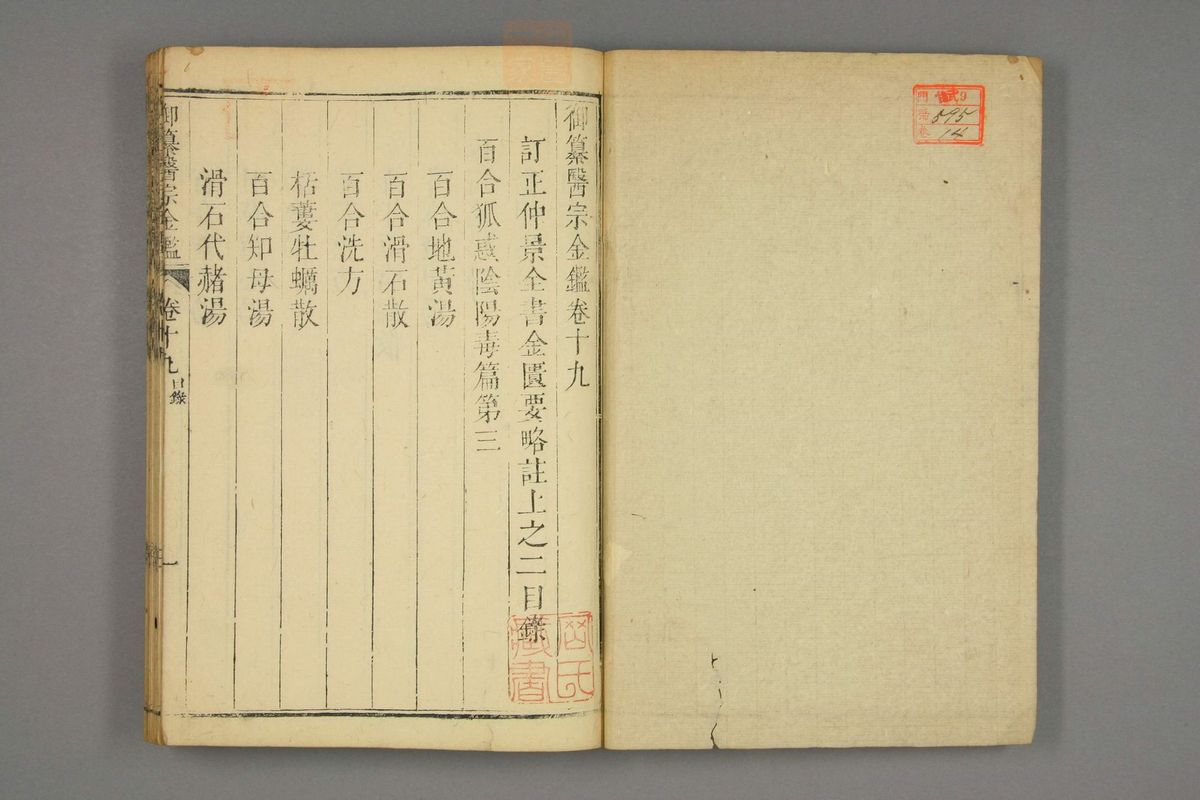 御纂醫宗金鑑卷十九
訂正仲景全書金匱要略註上之二目錄
百合狐惑陰陽毒篇第三
百合地黃湯
百合滑石散
百合洗方
栝蔞牡蠣散
百合知母湯
滑石代赭湯
御纂醫宗金鑑
卷十九
目錄
一
藏書
9
595
14